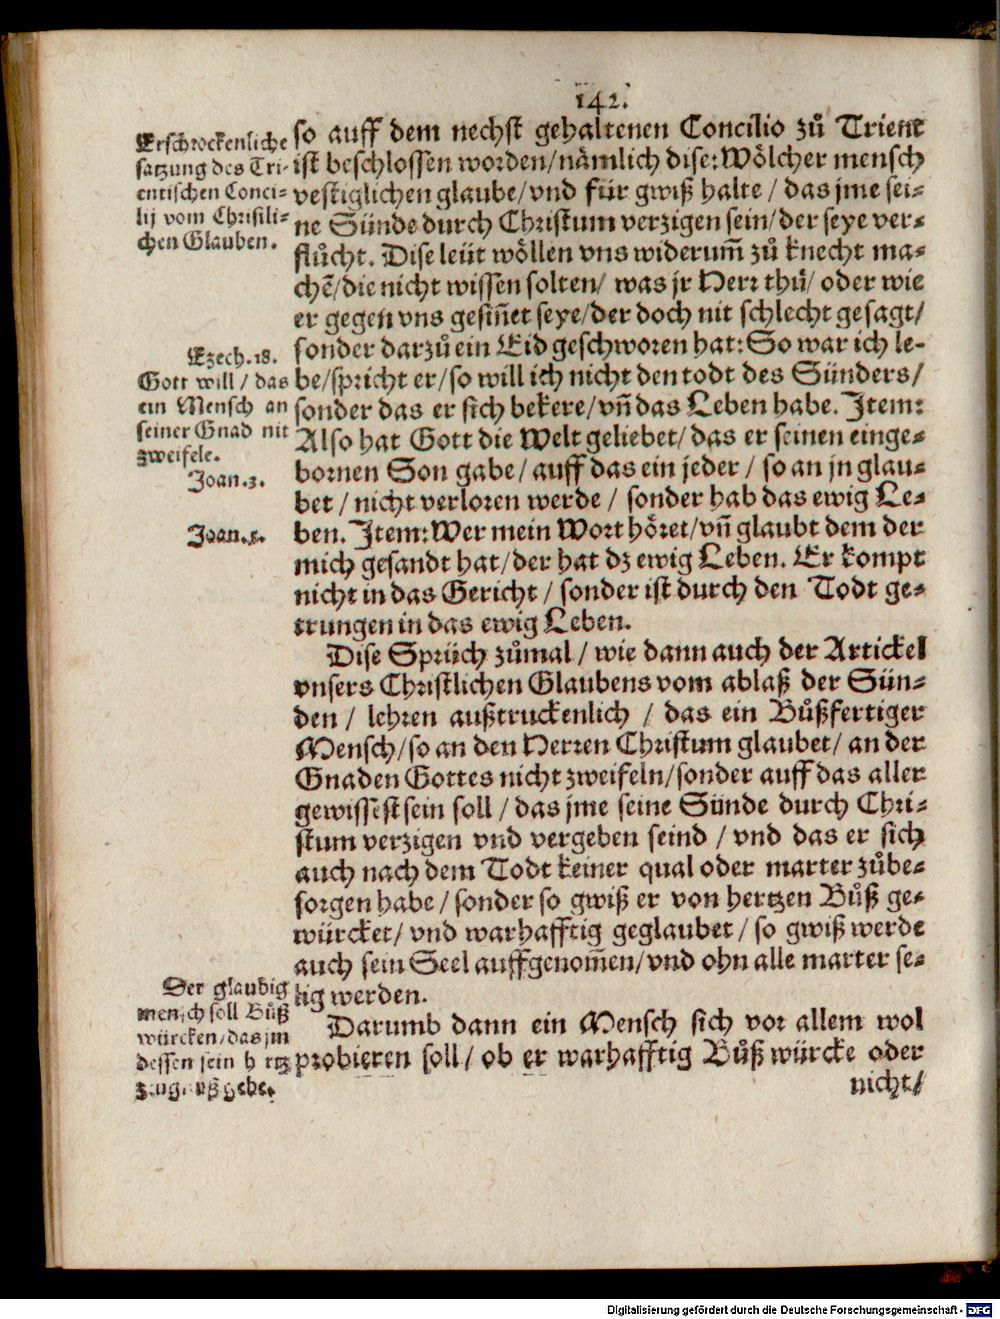 142.
Erschrockenliche
satzung des Tri-
entischen Conci-
lij vom Christli-
chen Glauben.
so auff dem nechst gehaltenen Concilio zů Trient
ist beschlossen worden/nämlich dise: Wölcher mensch
vestiglichen glaube/vnd für gwiß halte / das jme sei-
ne Sünde durch Christum verzigen sein/der seye ver-
flůcht. Dise leüt wöllen vns widerum̃ zů knecht ma-
chẽ/die nicht wissen solten/ was jr Herr thů/ oder wie
er gegen vns gesiñet seye/der doch nit schlecht gesagt/
sonder darzů ein Eid geschworen hat: So war ich le-
be/spricht er/so will ich nicht den todt des Sünders/
sonder das er sich bekere/vñ das Leben habe. Item:
Also hat Gott die Welt geliebet/das er seinen einge-
bornen Son gabe/auff das ein jeder / so an jn glau-
bet / nicht verloren werde / sonder hab das ewig Le-
ben. Item: Wer mein Wort höret/vñ glaubt dem der
mich gesandt hat/der hat dz ewig Leben. Er kompt
nicht in das Gericht / sonder ist durch den Todt ge-
trungen in das ewig Leben.
Ezech.18.
Gott will / das
ein Mensch an
seiner Gnad nit
zweifele.
Joan.3.
Joan.5.
Dise Sprüch zůmal / wie dann auch der Artickel
vnsers Christlichen Glaubens vom ablaß der Sün-
den / lehren außtruckenlich / das ein Bůßfertiger
Mensch/so an den Herren Christum glaubet/ an der
Gnaden Gottes nicht zweifeln/sonder auff das aller
gewissest sein soll / das jme seine Sünde durch Chri-
stum verzigen vnd vergeben seind / vnd das er sich
auch nach dem Todt keiner qual oder marter zůbe-
sorgen habe / sonder so gwiß er von hertzen Bůß ge-
würcket/ vnd warhafftig geglaubet / so gwiß werde
auch sein Seel auffgenom̃en/vnd ohn alle marter se-
lig werden.
Darumb dann ein Mensch sich vor allem wol
probieren soll/ ob er warhafftig Bůß würcke oder
nicht/
Der glaubig
mensch soll Bůß
würcken/das jm
dessen sein hertz
zeugnuß gebe.
Digitalisierung gefördert durch die Deutsche Forschungsgemeinschaft - DFG